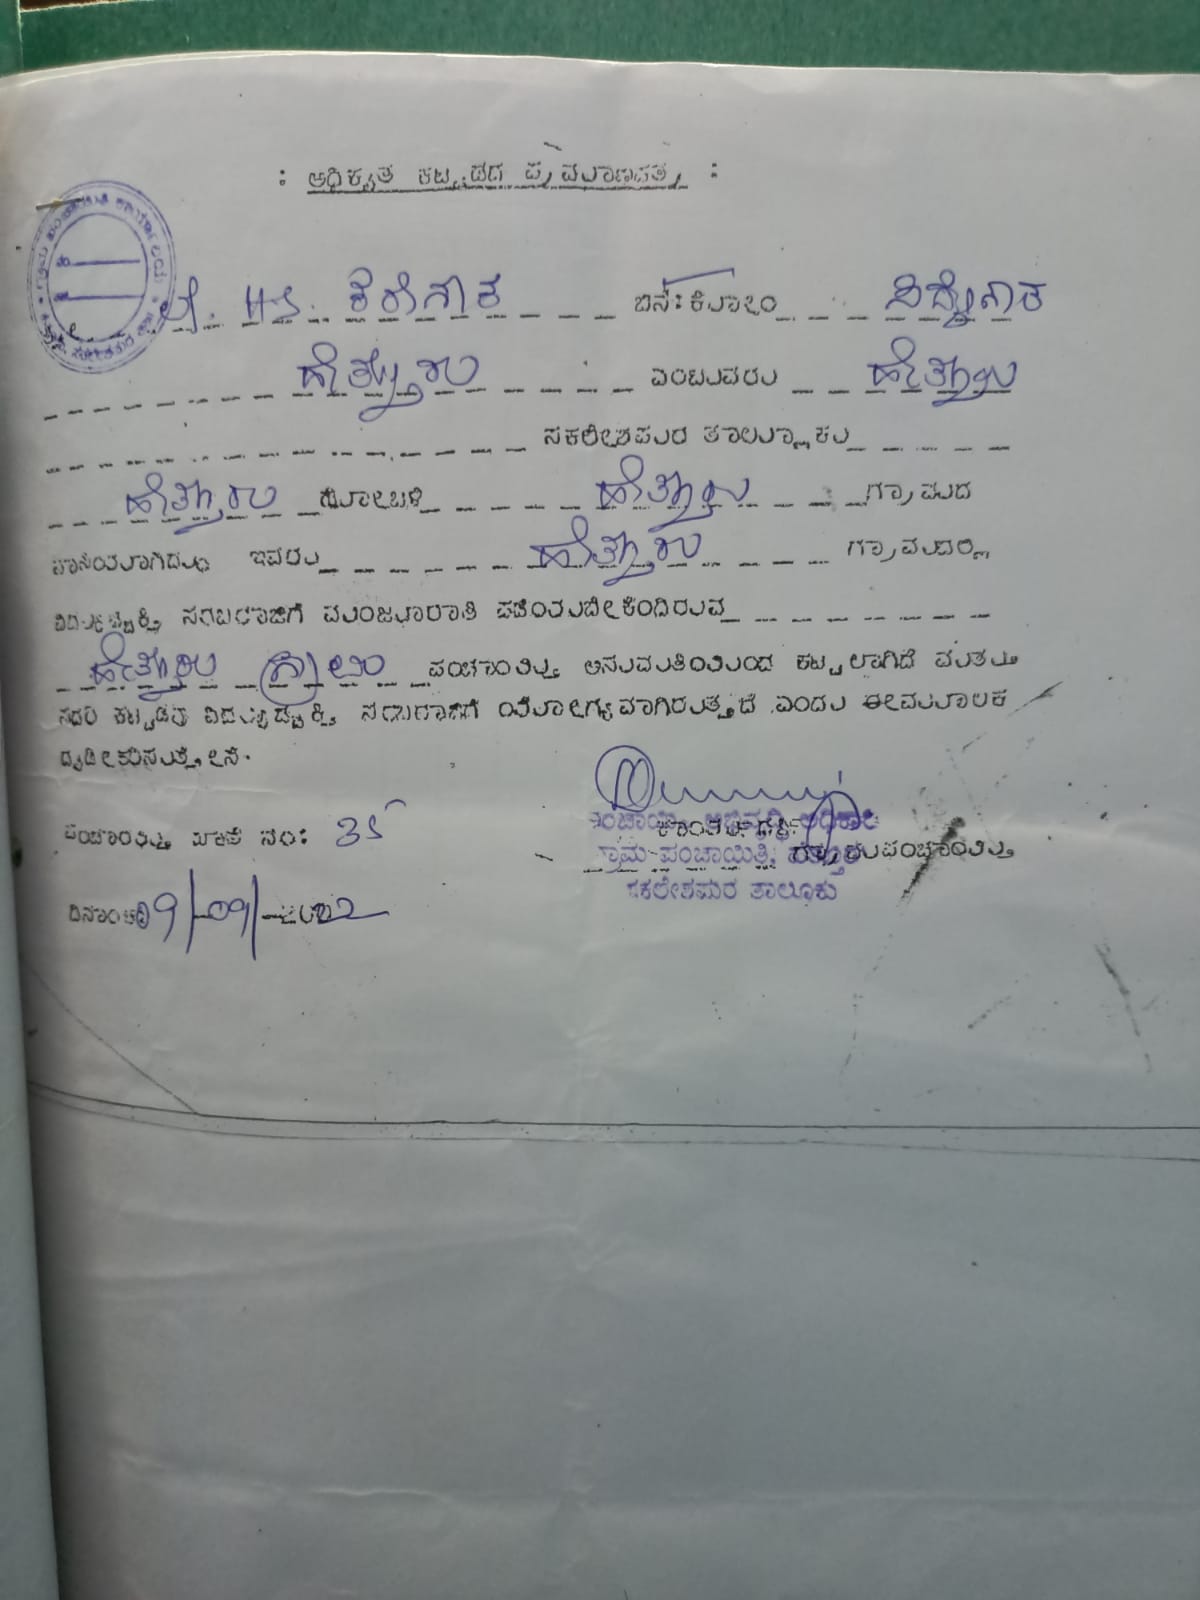 : ಅಧಿಕೃತ ಕಟ್ಟಡದ ಪ್ರಮಾಣಪತ್ರ :
ಬಿನ್/ಕೋಂ
ಹೆತ್ತೂರು ಎಂಬುವರು ಹೆತ್ತೂರು
ಸಕಲೇಶಪುರ ತಾಲ್ಲೂಕು
ಹೆತ್ತೂರು ಹೋಬಳಿ ಹೆತ್ತೂರು ಗ್ರಾಮದ
ವಾಸಿಯಾಗಿದ್ದು ಇವರು ಹೆತ್ತೂರು ಗ್ರಾಮದಲ್ಲಿ
ವಿದ್ಯುಚ್ಛಕ್ತಿ ಸರಬರಾಜಿಗೆ ಮಂಜೂರಾತಿ ಪಡೆಯಬೇಕೆಂದಿರುವ
ಹೆತ್ತೂರು ಗ್ರಾಮ ಪಂಚಾಯಿತಿ ಅನುಮತಿಯಿಂದ ಕಟ್ಟಲಾಗಿದೆ ಮತ್ತು
ಸದರಿ ಕಟ್ಟಡವು ವಿದ್ಯುಚ್ಛಕ್ತಿ ಸರಬರಾಜಿಗೆ ಯೋಗ್ಯವಾಗಿರುತ್ತದೆ ಎಂದು ಈ ಮೂಲಕ
ದೃಢೀಕರಿಸುತ್ತೇನೆ.
ಪಂಚಾಯಿತಿ ಖಾತೆ ನಂ: 35
ಕಾರ್ಯದರ್ಶಿ
ಪಂಚಾಯಿತಿ ಅಭಿವೃದ್ಧಿ ಅಧಿಕಾರಿ
ಗ್ರಾಮ ಪಂಚಾಯಿತಿ, ಹೆತ್ತೂರು ಗ್ರಾಮ ಪಂಚಾಯಿತಿ
ಸಕಲೇಶಪುರ ತಾಲ್ಲೂಕು
ದಿನಾಂಕ 09/09/2022